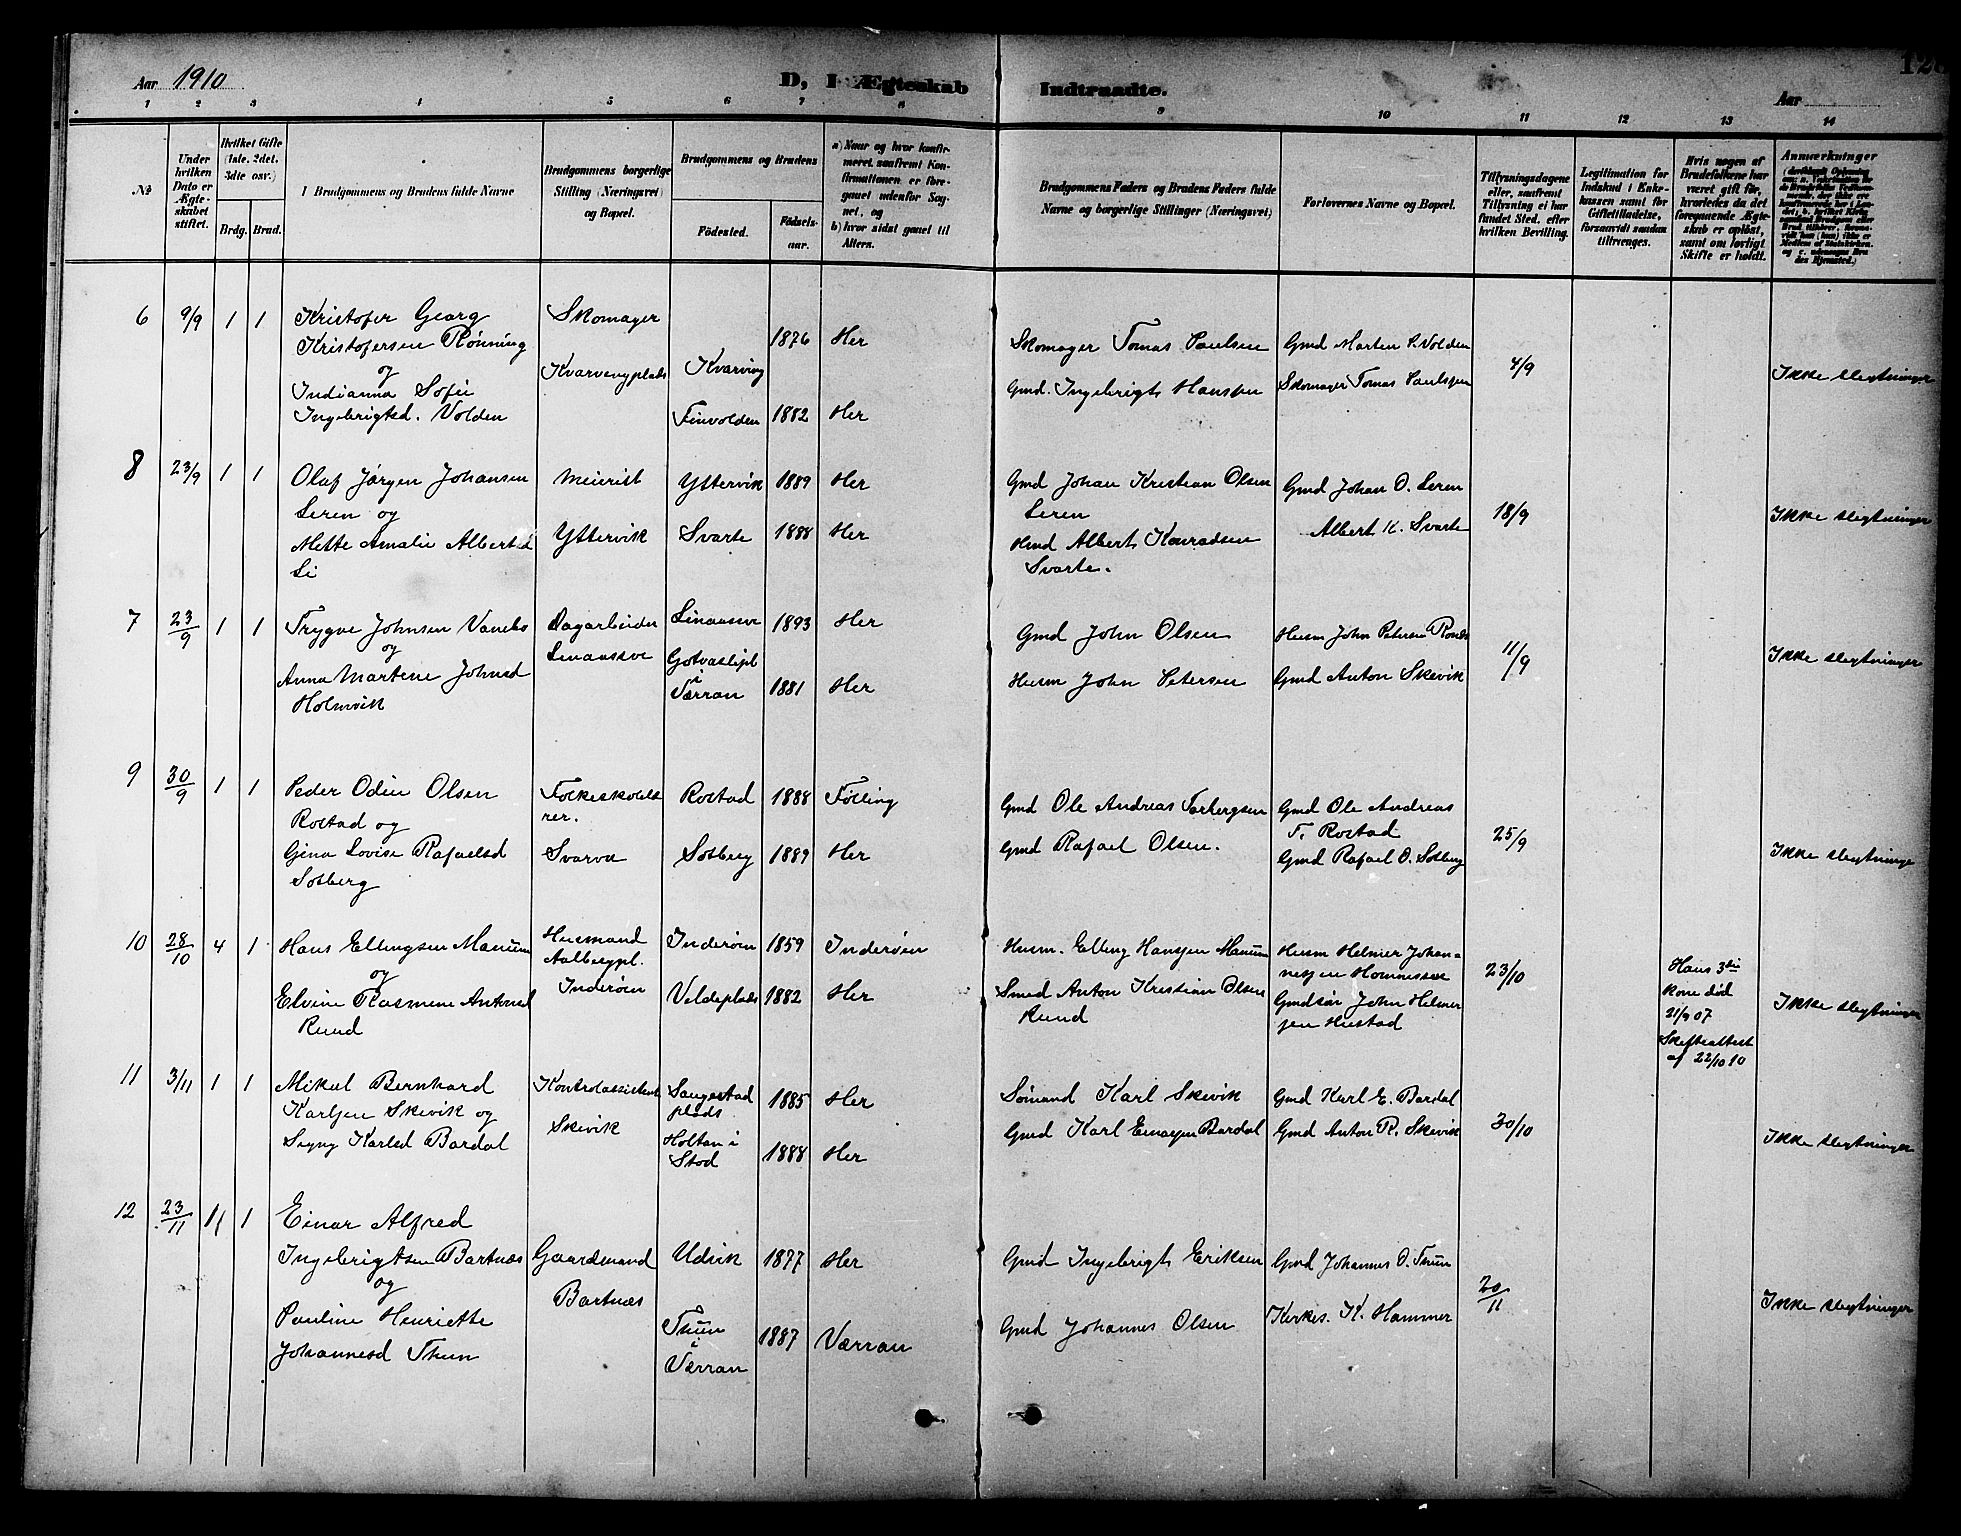 Aar 1910
D, I Ægteskab Indtraadte.
Aar
1 2 3 4 5 6 7 8 9 10 11 12 13 14
No
Under hvilken Dato er Ægteskabet stiftet.
Hvilket Gifte (1ste, 2det, 3die osv.)
Brdg. Brud.
Brudgommens og Brudens fulde Navne
Brudgommens borgerlige Stilling (Næringsvei) og Bopæl.
Brudgommens og Brudens
Fødested. Fødselsaar.
a) Naar og hvor konfirmeret, saafremt Konfirmationen er foregaaet udenfor Sognet, og
b) hvor sidst gaaet til Alters.
Brudgommens Faders og Brudens Faders fulde Navne og borgerlige Stillinger (Næringsvei)
Forlovernes Navne og Bopæl.
Tillysningsdagene eller, saafremt Tillysning ei har fundet Sted, efter hvilken Bevilling.
Legitimation for Indskud i Enkekassen samt for Giftetilladelse, forsaavidt saadan tiltrænges.
Hvis nogen af Brudefolkene har været gift før, hvorledes da det foregaaende Ægteskab er opløst, samt om lovligt Skifte er holdt.
Anmærkninger
6 9/9 1 1
Kristofer Georg
Kristofersen Rønning
og
Indianna Sofie
Ingebrigtsd. Volden
Skomager
Kvarvengplads
Kvarving 1876 Her
Finvolden 1882 Her
Skomager Tomas Paulsen
Gmd. Ingebrigt Hanssen
Gmd Morten P. Volden
Skomager Tomas Paulssen
4/9
Ikke slegtninger
8 23/9 1 1
Olaf Jørgen Johansen
Leren og
Mette Amalie Albertsd
Li
Meierist
Yttervik
Yttervik 1889 Her
Svarte 1888 Her
Gmd Johan Kristian Olsen
Leren
Hmd Albert Konradsen
Svarte.
Gmd Johan O. Leren
Albert K. Svarte
18/9
Ikke slegtninger
7 23/9 1 1
Trygve Johnsen Vanebo
og
Anna Martene Johnsd
Holmvik
Dagarbeider
Linaasve
Linaasve 1893 Her
Gotvaslipl
i
Værran 1881 Her
Gmd John Olsen
Husm John Petersen
Husm John Petersen
Gmd Anton Skevik
11/9
Ikke slegtninger
9 30/9 1 1
Peder Odin Olsen
Rostad og
Gjena Lovise Rafaelsd
Solberg
Folkeskolelærer.
Svarva
Rostad 1888 Følling
Solberg 1889 Her
Gmd Ole Andreas Torbergsen
Gmd Rafael Olsen.
Gmd Ole Andreas
T. Rostad
Gmd Rafael O. Solberg
25/9
Ikke slegtninge
10 28/10 4 1
Hans Ellingsen Manum
og
Elvine Rasmine Antonsd
Rund
Husmand
Aalbergpl.
Inderøen
Inderøen 1859 Inderøen
Veldeplads 1882 Her
Husm. Elling Hansen Manum
Smed Anton Kristian Olsen
Rund
Husm Helmer Johannessen
Gmdsøn John Helmersen Hustad
23/10
Hans 3die
kone død
21/9 07
Skifteattest
af 22/10 10
Ikke slegtninger
11 3/11 1 1
Mikal Bernhard
Karlsen Skevik og
Signy Karlsd Bardal
Kontrolassistent
Skevik
Saugestad
plads 1885 Her
Holtan i
Stod 1888 Her
Sømand Karl Skevik
Gmd Karl Einarsen Bardal
Gmd Karl E. Bardal
Gmd Anton R. Skevik
30/10
Ikke slegtninger
12 23/11 1 1
Einar Alfred
Ingebrigtsen Bartnæs
og
Pauline Henriette
Johannesd Thun
Gaardmand
Bartnæs
Udvik 1877 Her
Thun
i
Værran 1887 Værran
Gmd Ingebrigt Eriksen
Gmd Johannes Olsen
Gmd Johannes O. Thun
Kirkes. K. Hammer
20/11
Ikke slegtninger